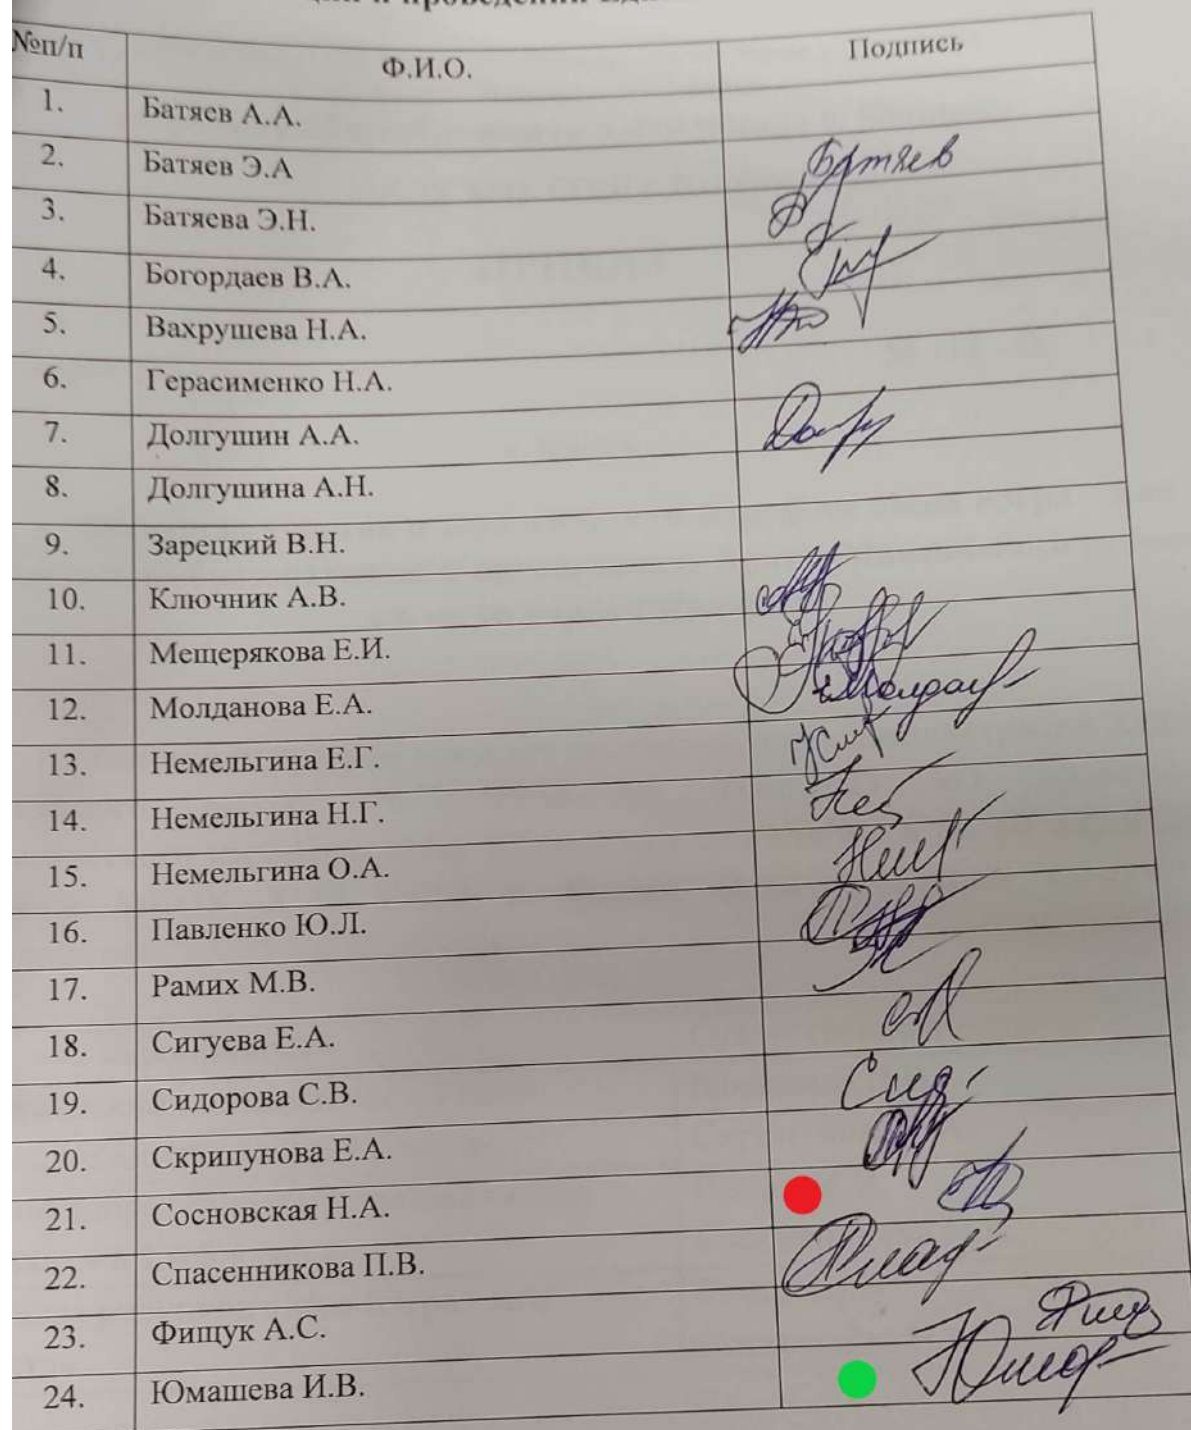 №п/п Ф.И.О. Подпись
1. Батяев А.А.
2. Батяев Э.А Батяев
3. Батяева Э.Н.
4. Богордаев В.А.
5. Вахрушева Н.А.
6. Герасименко Н.А.
7. Долгушин А.А.
8. Долгушина А.Н.
9. Зарецкий В.Н.
10. Ключник А.В.
11. Мещерякова Е.И.
12. Молданова Е.А.
13. Немельгина Е.Г.
14. Немельгина Н.Г.
15. Немельгина О.А.
16. Павленко Ю.Л.
17. Рамих М.В.
18. Сигуева Е.А.
19. Сидорова С.В.
20. Скрипунова Е.А.
21. Сосновская Н.А.
22. Спасенникова П.В.
23. Фищук А.С.
24. Юмашева И.В.